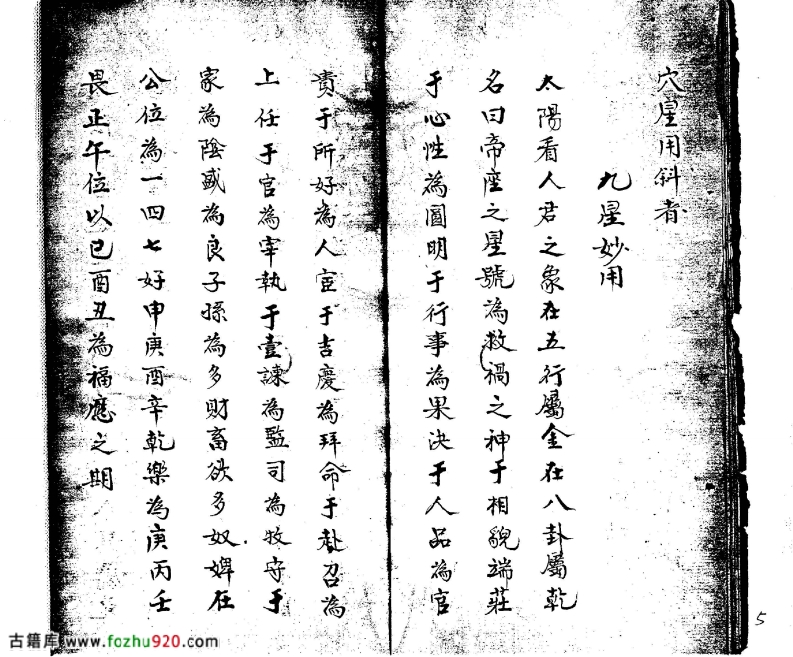 穴星用斜者
九星妙用
太陽看人君之象在五行屬金在八卦屬乾
名曰帝座之星號為救禍之神于相貌端莊
于心性為圓明于行事為果決于人品為官
貴于所好為人宦于吉慶為拜命于赴召為
上任于官為宰執于壹諫為監司為牧守于
家為陰盛為良子孫為多財畜欲多奴婢在
公位為一四七好申庚酉辛乾樂為庚丙壬
畏正午位以巳酉丑為福應之期
5
古籍库 www.fozhu920.com